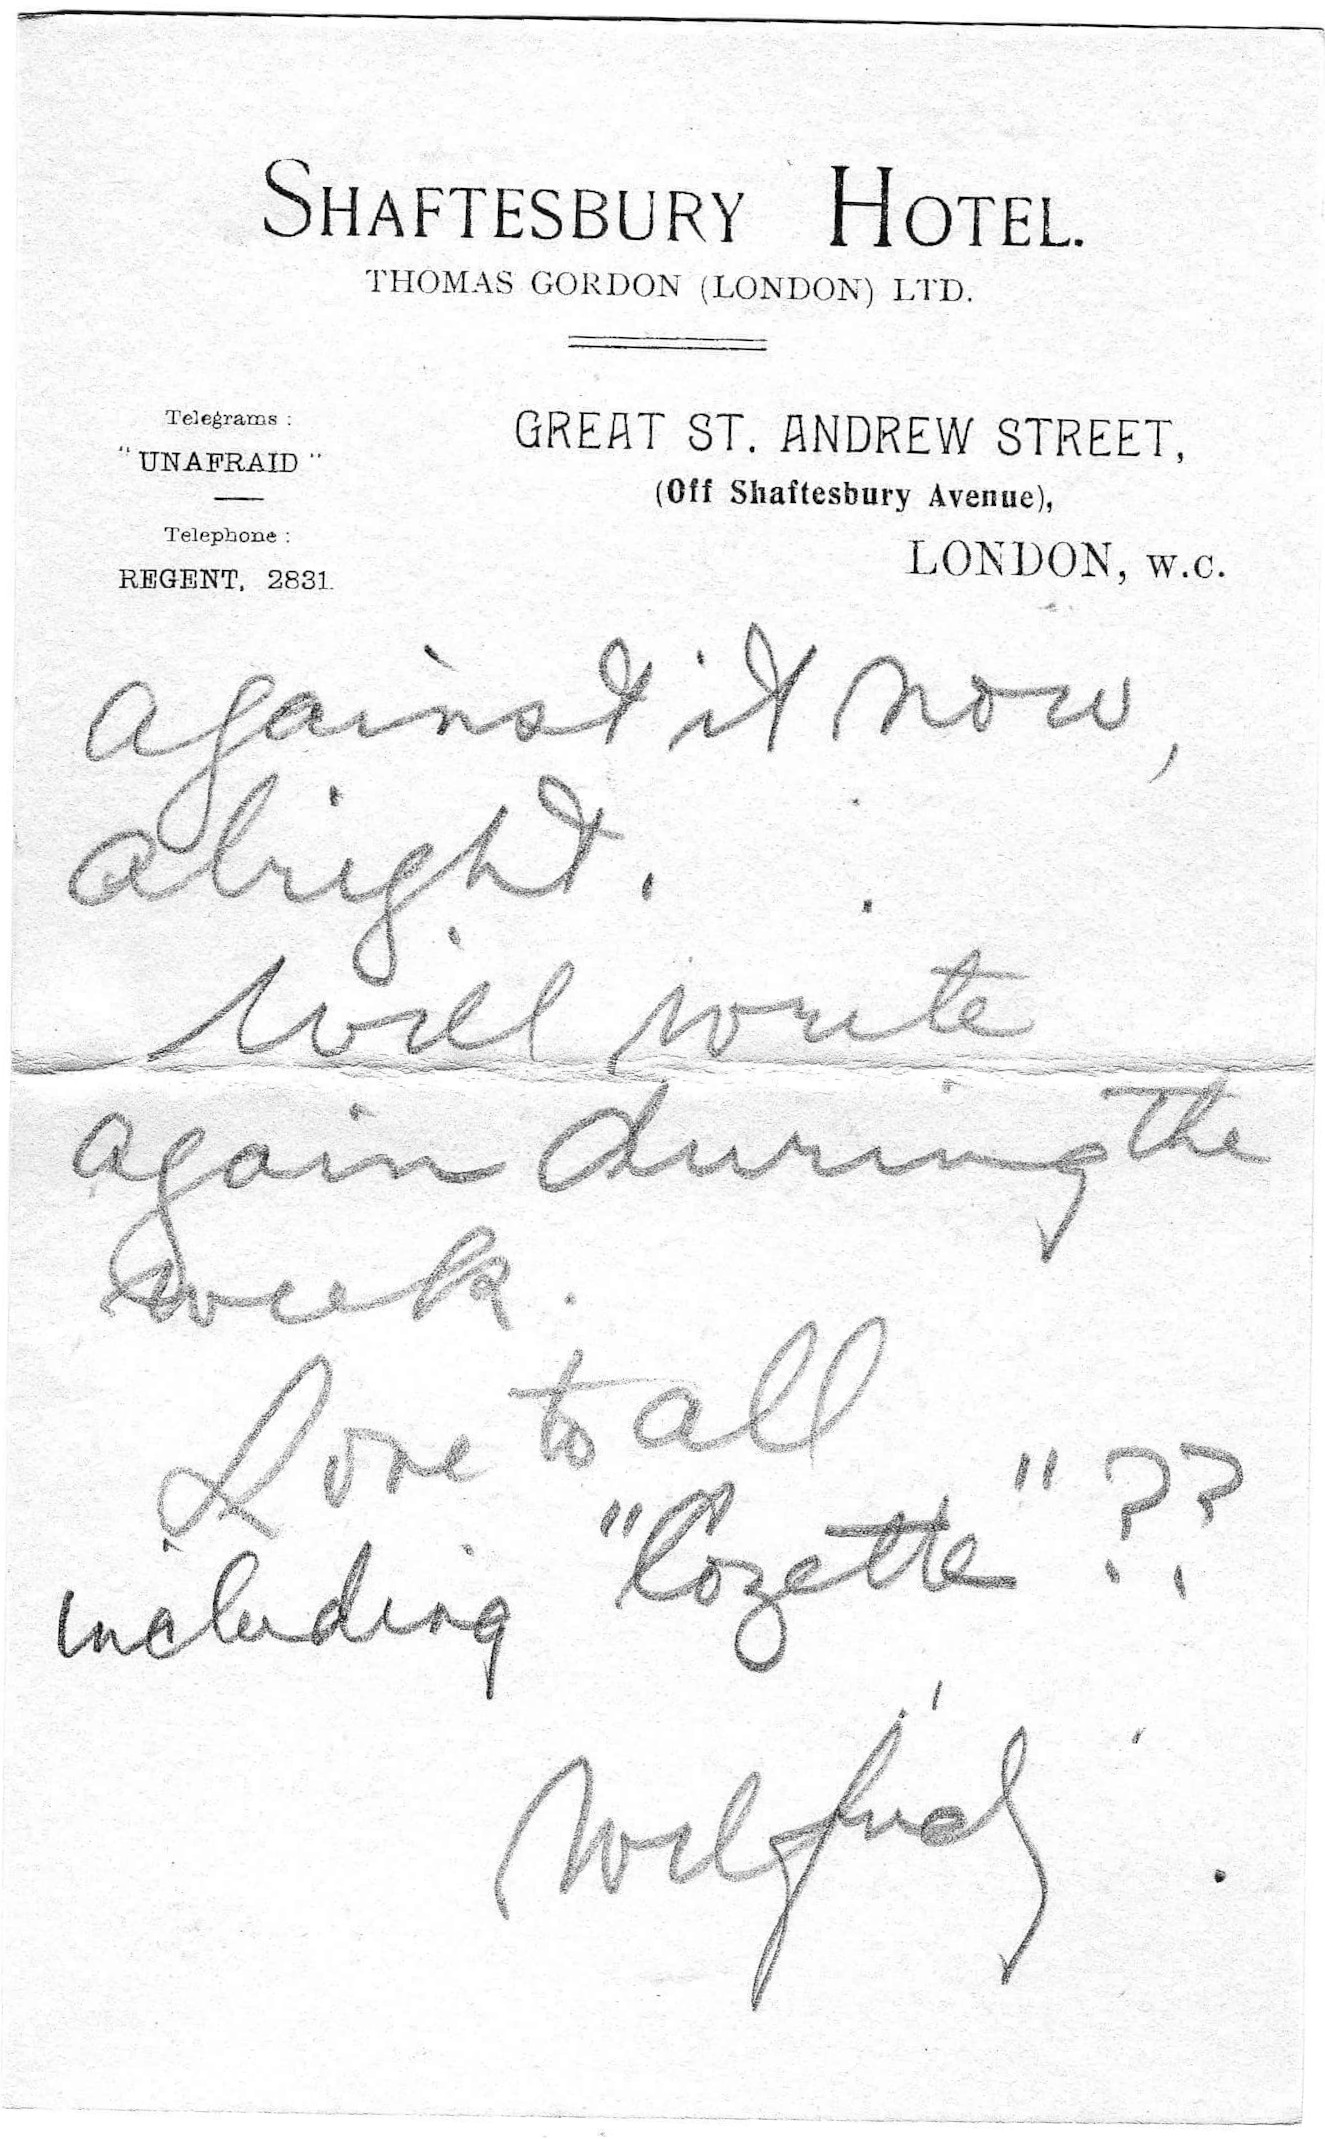 SHAFTESBURY HOTEL.
THOMAS GORDON (LONDON) LTD.
Telegrams :
"UNAFRAID"
Telephone :
REGENT, 2831.
GREAT ST. ANDREW STREET,
(Off Shaftesbury Avenue),
LONDON, W.C.
against it now,
alright.
Will write
again during the
week.
Love to all
including "Cozette" ??
Wilfrid